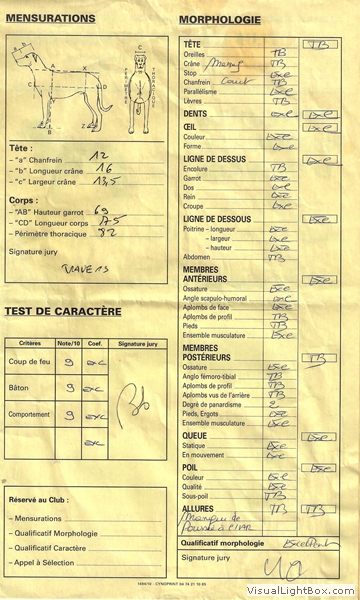 MENSURATIONS
Tête :
– "a" Chanfrein 12
– "b" Longueur crâne 16
– "c" Largeur crâne 13,5
Corps :
– "AB" Hauteur garrot 69
– "CD" Longueur corps 75
– Périmètre thoracique 82
Signature jury
TRAVERS
TEST DE CARACTÈRE
Critères Note/10 Coef. Signature jury
Coup de feu 9 exc
Bâton 9 exc
Comportement 9 exc
exc
Réservé au Club :
– Mensurations
– Qualificatif Morphologie
– Qualificatif Caractère
– Appel à Sélection
MORPHOLOGIE
TÊTE TB
Oreilles TB
Crâne TB
Stop Exe
Chanfrein court TB
Parallélisme Exe
Lèvres TB
DENTS exe Exe
ŒIL Exe
Couleur Exe
Forme Exe
LIGNE DE DESSUS Exe
Encolure TB
Garrot Exe
Dos Exe
Rein Exe
Croupe Exe
LIGNE DE DESSOUS Exe
Poitrine – longueur Exe
– largeur Exe
– hauteur Exe
Abdomen TB
MEMBRES
ANTÉRIEURS Exe
Ossature Exe
Angle scapulo-huméral exe
Aplombs de face Exe
Aplombs de profil TB
Pieds TB
Ensemble musculature Exe
MEMBRES
POSTÉRIEURS TB
Ossature Exe
Anglo fémoro-tibial TB
Aplombs de profil TB
Aplombs vus de l'arrière TB
Degré de panardisme 2
Pieds, Ergots Exe
Ensemble musculature Exe
QUEUE Exe
Statique Exe
En mouvement Exe
POIL Exe
Couleur Exe
Qualité Exe
Sous-poil TB
ALLURES TB TB
Manque de
Qualificatif morphologie Excellent
Signature jury
CYNOPRINT
VisualLightBox.com